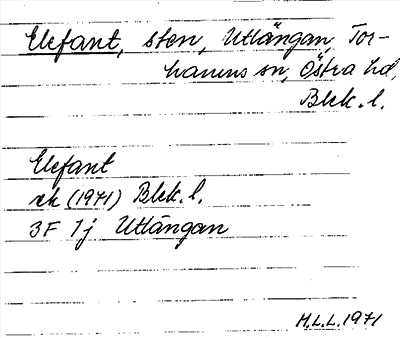 Elefant, sten, Utlängan, Tor-
hamns sn, Östra hd,
Blek. l.
Elefant
ek (1971) Blek. l.
3F 7j Utlängan
M.L.L. 1971